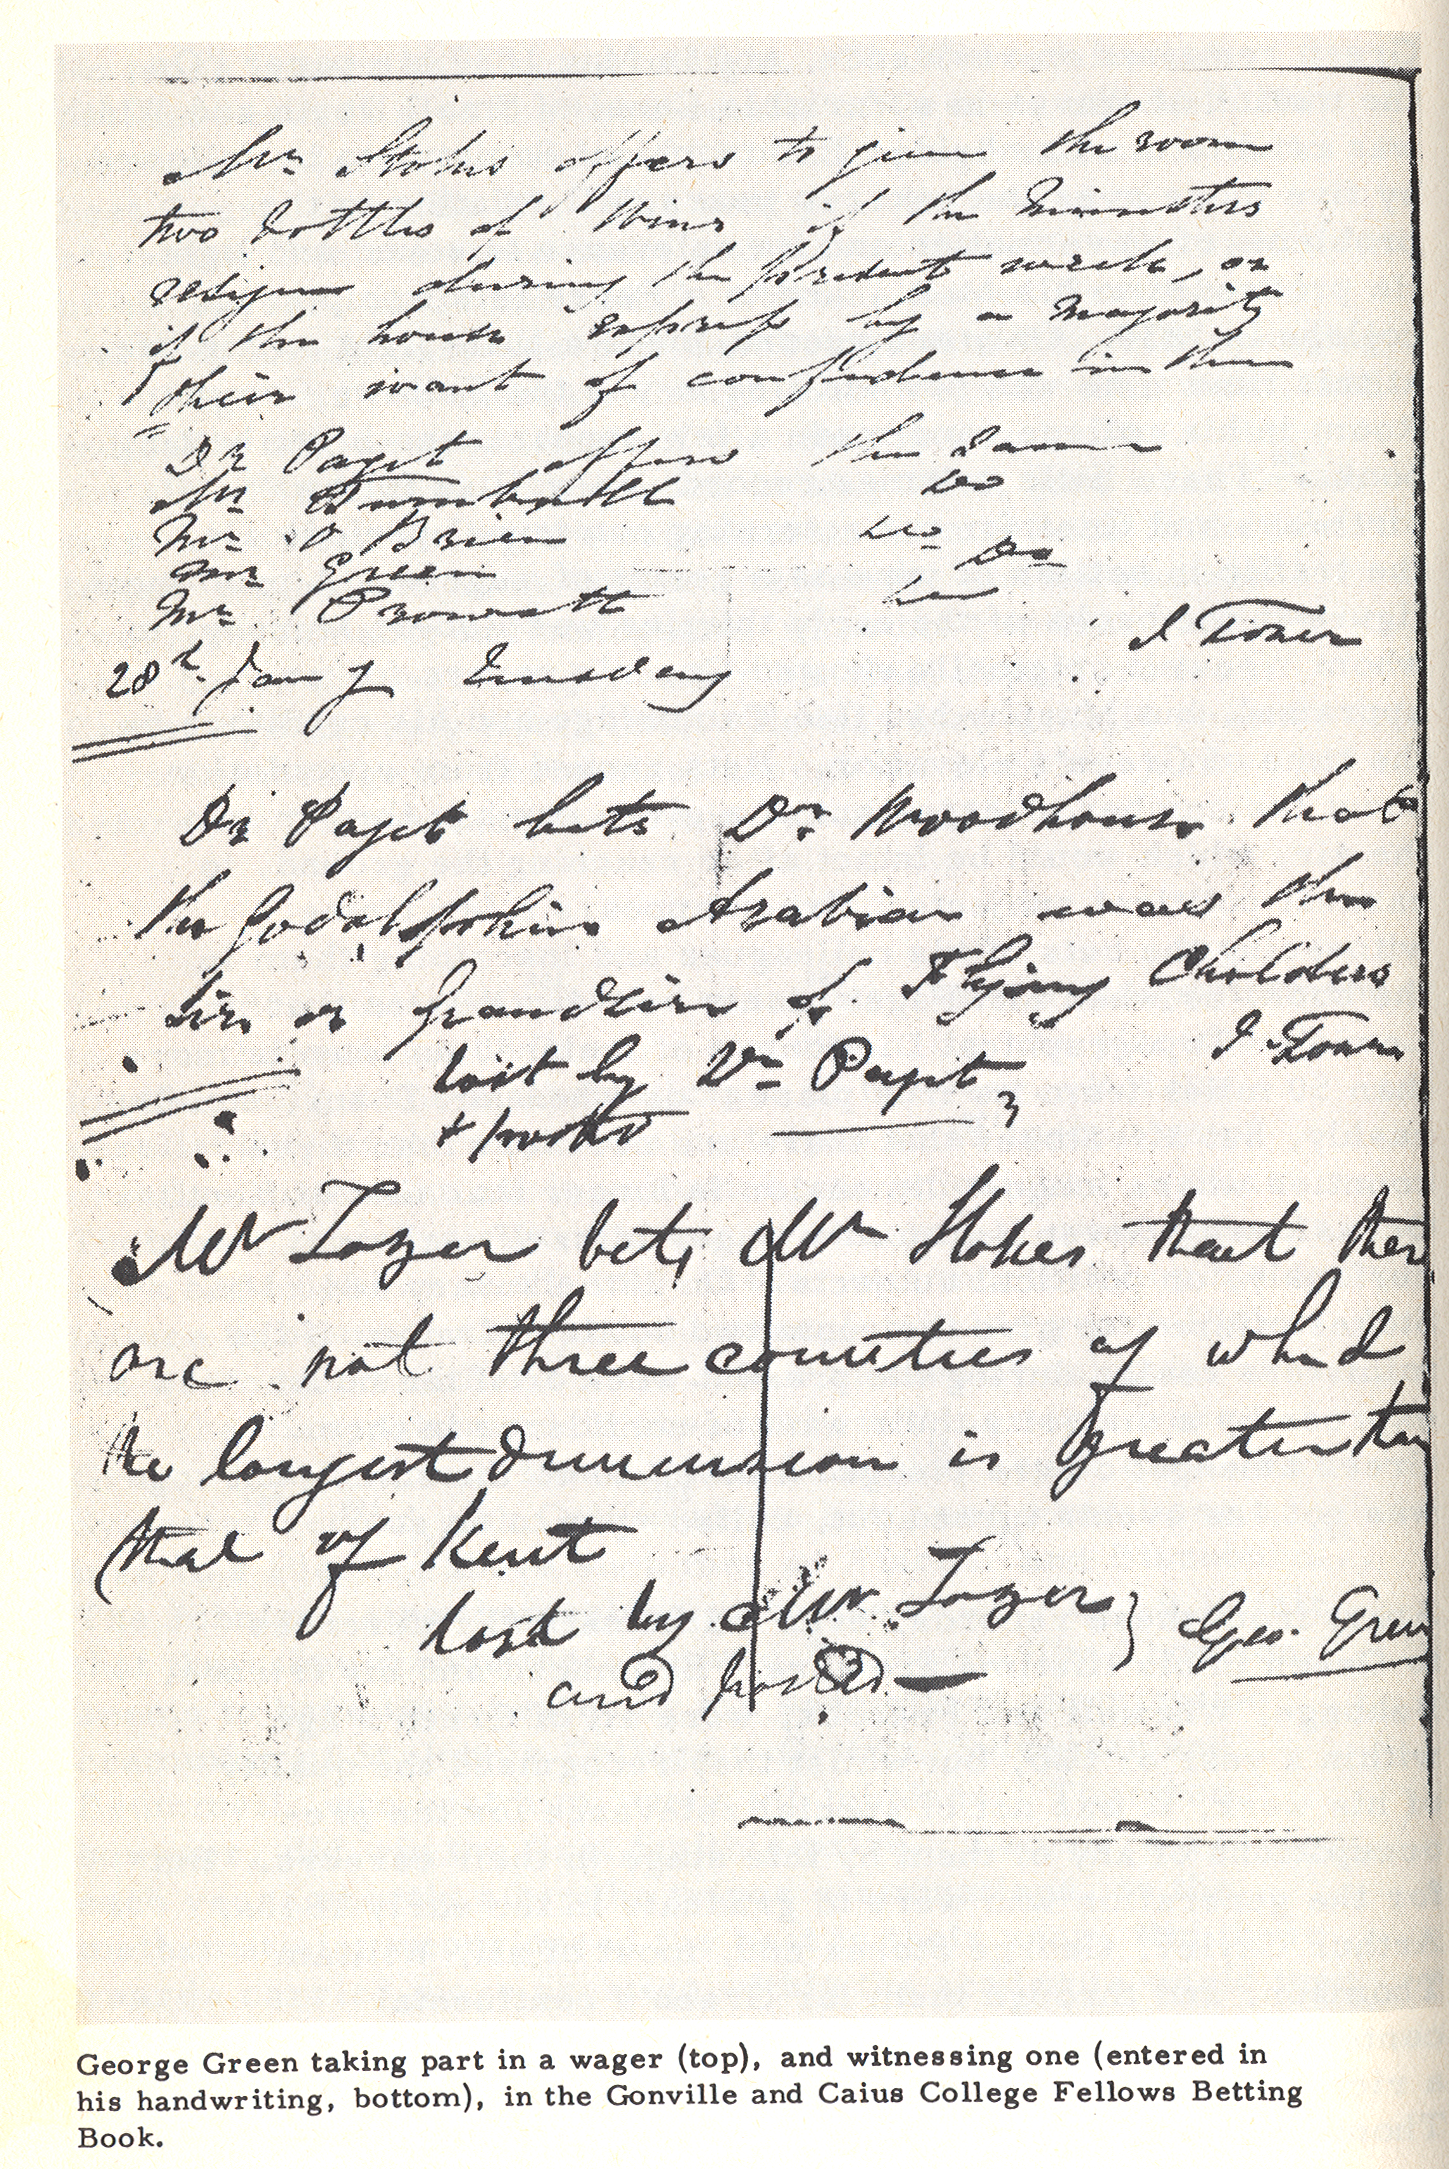 Mr Stokes offers to give the room
two bottles of Wine if the Ministers
resign during the present week, or
if the house express by a majority
their want of confidence in them
Dr Paget offers the same
Mr Turnbull Do
Mr O Brien Do
Mr Green Do
Mr Prowett Do
J Tozer
28th Jany Tuesday
Dr Paget bets Dr Woodhouse that
the Godolphin Arabian was the
sire or grandsire of Flying Childers
lost by Dr Paget J Tozer
& posted
Mr Tozer bets Mr Stokes that there
are not three counties of which
the longest dimension is greater than
that of Kent
lost by Mr Tozer } Geo. Green
and posted —
George Green taking part in a wager (top), and witnessing one (entered in
his handwriting, bottom), in the Gonville and Caius College Fellows Betting
Book.